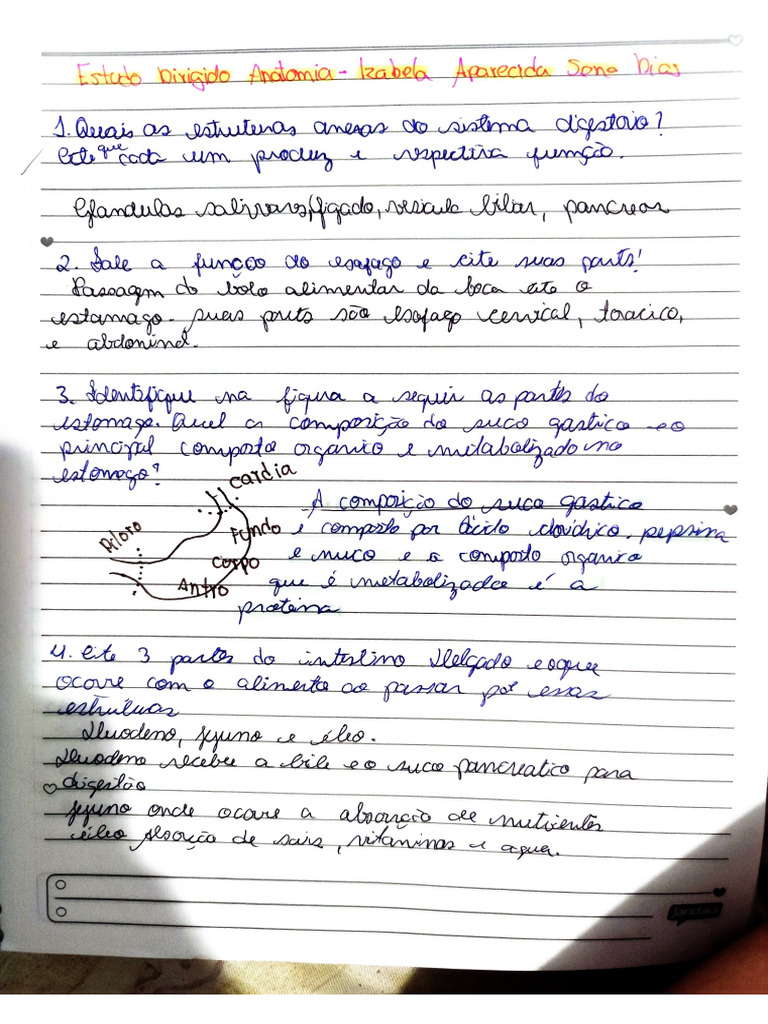 Estudo Dirigido Anatomia - Izabela Aparecida Sena Dias
1. Quais as estruturas anexas do sistema digestorio?
Cite que cada um produz e respectiva função.
Glandulas salivares, figado, vesicula biliar, pancreas
2. Fale a função do esofago e cite suas parts!
Passagem do bolo alimentar da boca ate o
estomago. suas parts são esofago cervical, toracico,
e abdominal.
3. Identifique na figura a seguir as partes do
estomago. Qual a composição do suco gastico e o
principal composto organico e metabolizado no
estomago?
cardia
Piloro
Fundo
Corpo
Antro
A composição do suco gastico
é composto por ácido cloridrico, pepsina
e muco e o composto organico
que é metabolizado é a
proteina
4. Cite 3 partes do intestino delgado e oque
ocorre com o alimento ao passar por essas
estruturas
Duodeno, jejuno e ileo.
Duodeno recebe a bile e o suco pancreatico para
digestão
jejuno onde ocorre a absorção de nutrientes
ileo absorção de sais, vitaminas e agua.
jandaia